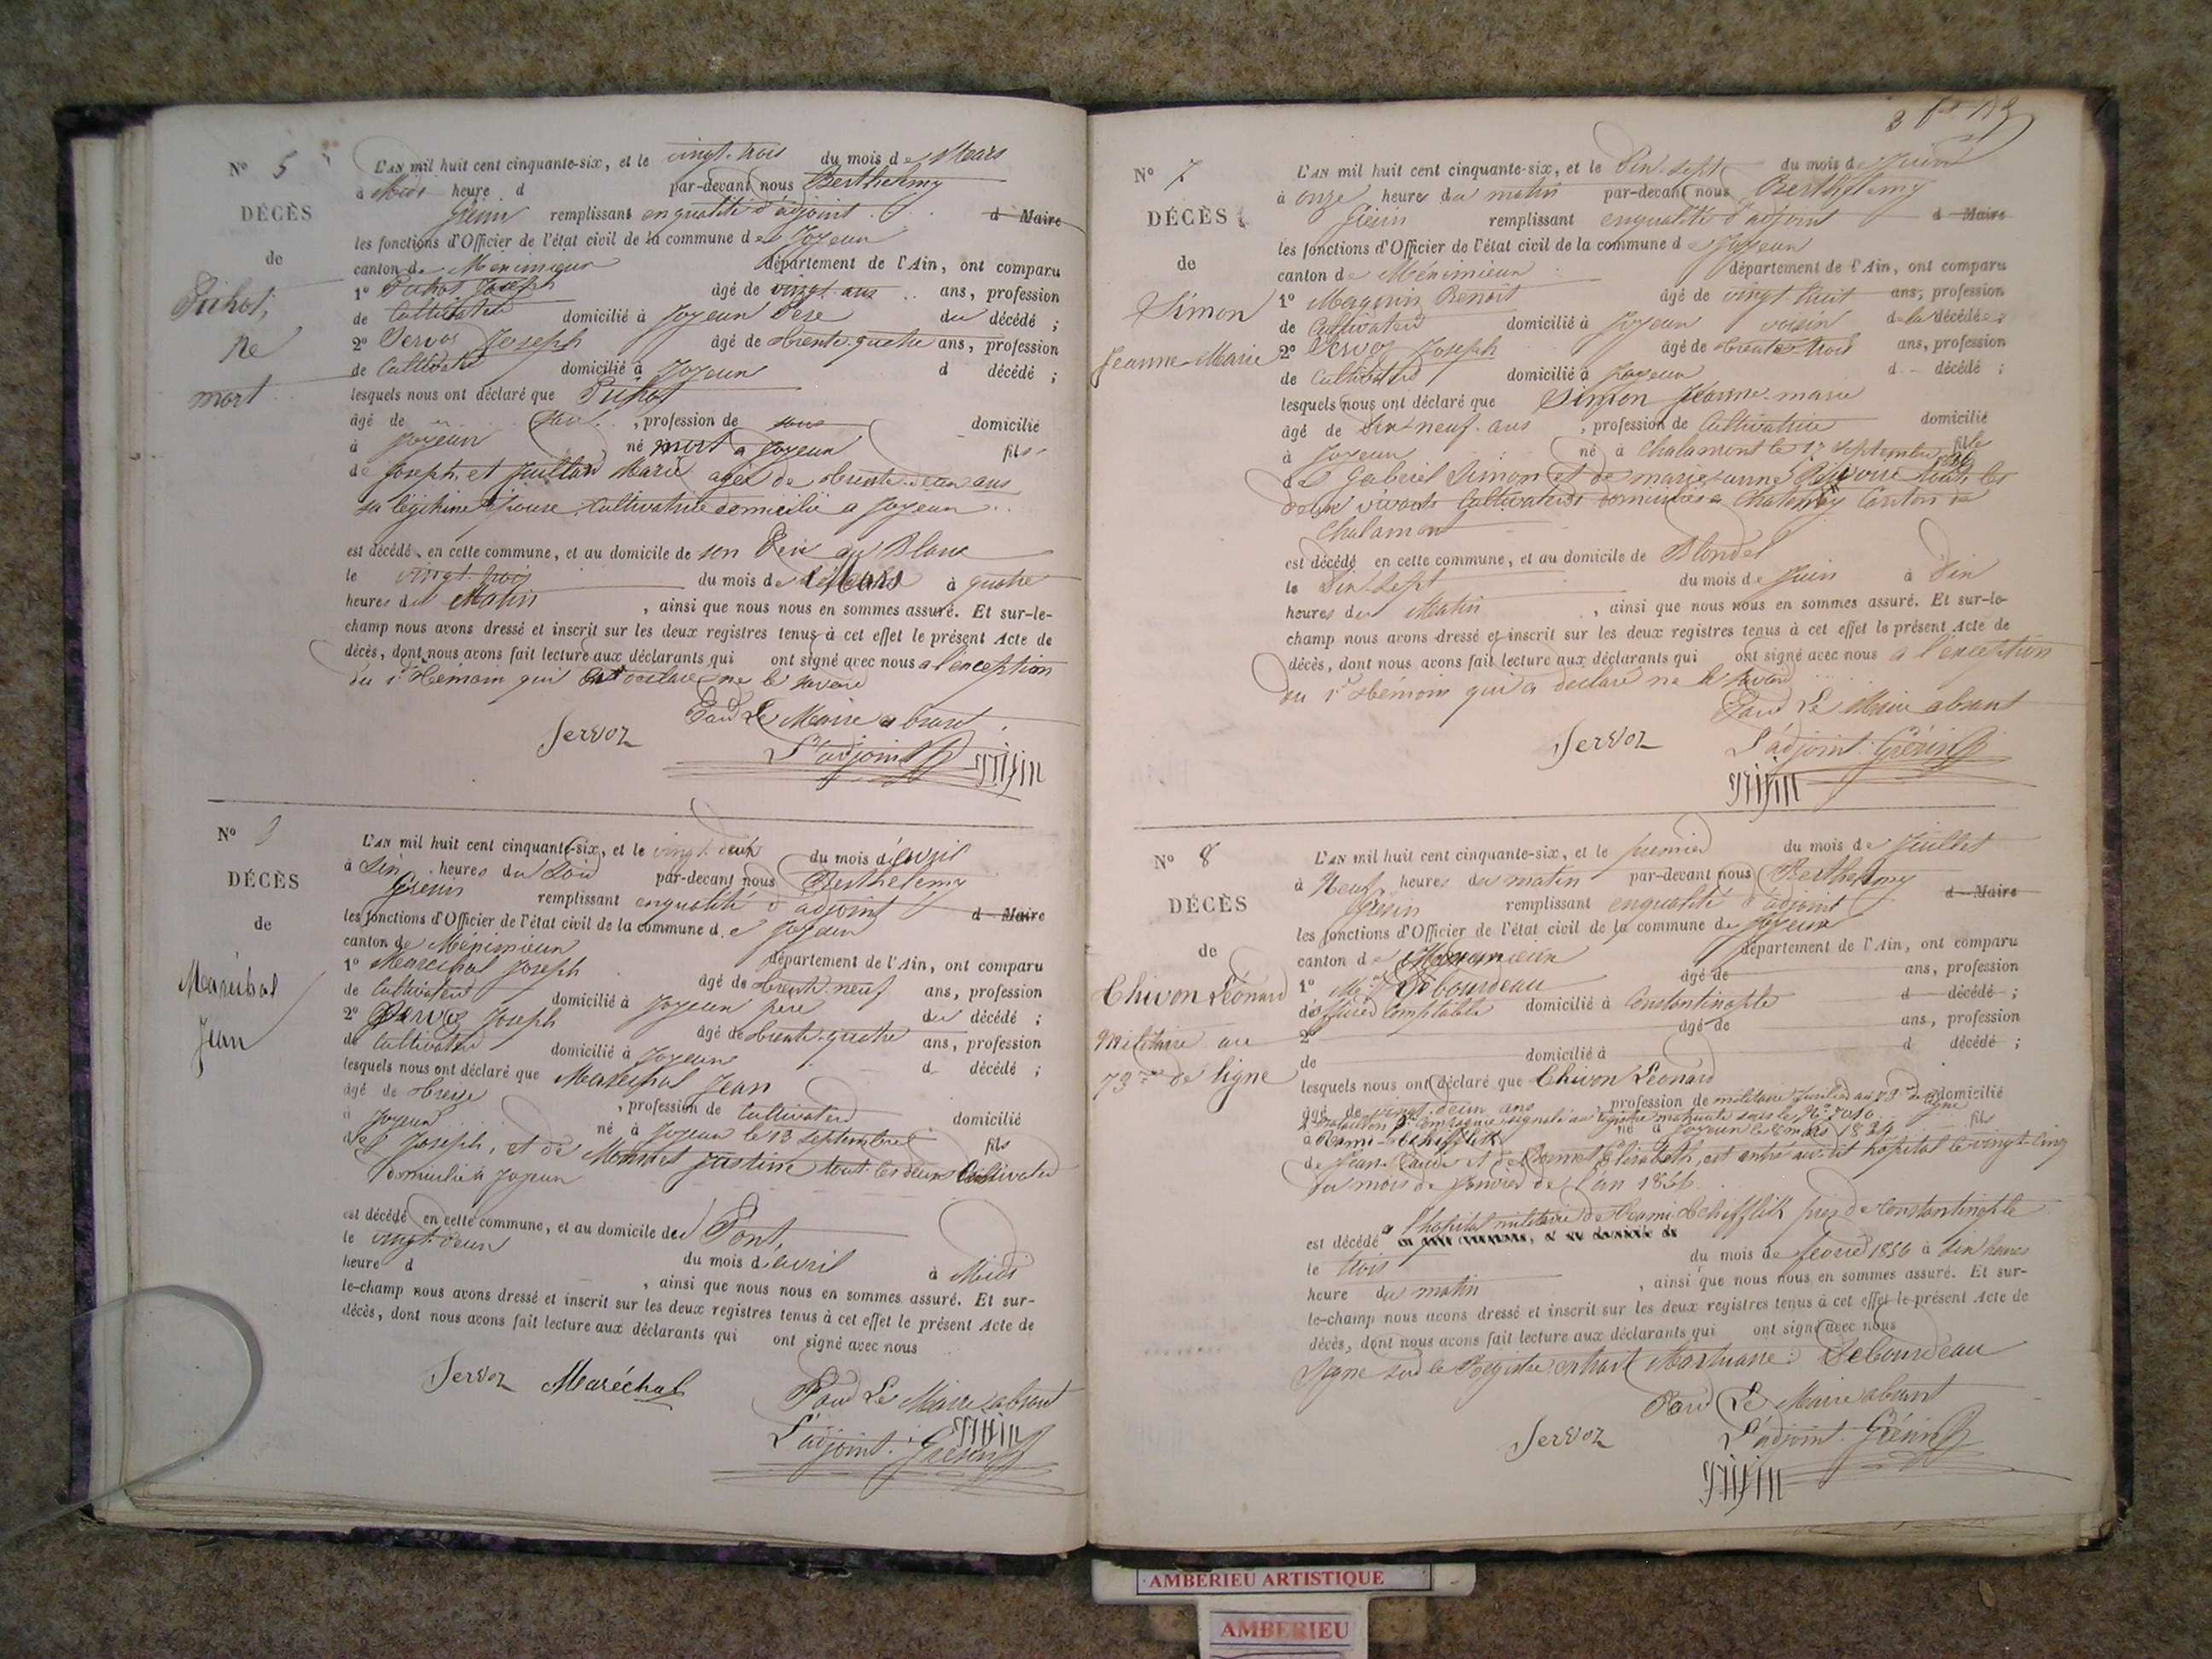 Nº 5
DÉCÈS
de
Pichot,
né
mort
L'AN mil huit cent cinquante-six, et le vingt-trois du mois de Mars
à Midi heure d par-devant nous Berthelemy
Grérin remplissant en qualité d'adjoint d Maire
les fonctions d'Officier de l'état civil de la commune de Joyeux
canton de Meximieux département de l'Ain, ont comparu
1º Pichot Joseph âgé de vingt ans ans, profession
de Cultivateur domicilié à Joyeux Père du décédé ;
2º Servoz Joseph âgé de trente-quatre ans, profession
de Cultivateur domicilié à Joyeux d décédé ;
lesquels nous ont déclaré que Pichot
âgé de , profession de sans domicilié
à Joyeux né mort a Joyeux fils
de Joseph et Juillard Marie agée de trente-deux ans
sa légitime épouse Cultivatrice domicilié a Joyeux
est décédé en cette commune, et au domicile de son Père au Blanc
le vingt-trois du mois de Mars à quatre
heures du Matin , ainsi que nous nous en sommes assuré. Et sur-le-
champ nous avons dressé et inscrit sur les deux registres tenus à cet effet le présent Acte de
décès, dont nous avons fait lecture aux déclarants qui ont signé avec nous a l'exception
du 1r témoin qui a déclaré ne le savoir
Pour Le Maire absent
Servoz L'adjoint
Nº
DÉCÈS
de
Maréchal
Jean
L'AN mil huit cent cinquante-six, et le vingt-deux du mois d'avril
à Six heures du Soir par-devant nous Berthelemy
Grérin remplissant en qualité d'adjoint d Maire
les fonctions d'Officier de l'état civil de la commune de Joyeux
canton de Méximieux département de l'Ain, ont comparu
1º Maréchal Joseph âgé de trente-neuf ans, profession
de Cultivateur domicilié à Joyeux père du décédé ;
2º Servoz Joseph âgé de trente-quatre ans, profession
de Cultivateur domicilié à Joyeux d décédé ;
lesquels nous ont déclaré que Maréchal Jean
âgé de treize , profession de Cultivateur domicilié
à Joyeux né à Joyeux le 13 septembre fils
de Joseph, et de Monnet Justine tout les deux Cultivateur
domicilié à Joyeux
est décédé en cette commune, et au domicile du Pont,
le vingt-deux du mois d'avril à Midi
heure d , ainsi que nous nous en sommes assuré. Et sur-
le-champ nous avons dressé et inscrit sur les deux registres tenus à cet effet le présent Acte de
décès, dont nous avons fait lecture aux déclarants qui ont signé avec nous
Servoz Maréchal Pour Le Maire absent
L'adjoint Grérin
Nº 7
DÉCÈS
de
Simon
Jeanne-Marie
L'AN mil huit cent cinquante-six, et le Dix-sept du mois de Juin
à onze heures du matin par-devant nous Berthelemy
Grérin remplissant en qualité d'adjoint d Maire
les fonctions d'Officier de l'état civil de la commune de Joyeux
canton de Méximieux département de l'Ain, ont comparu
1º Magnin Benoit âgé de vingt-huit ans, profession
de Cultivateur domicilié à Joyeux voisin de la décédée ;
2º Servoz Joseph âgé de trente-trois ans, profession
de Cultivateur domicilié à Joyeux d décédé ;
lesquels nous ont déclaré que Simon Jeanne-marie
âgé de Dix-neuf ans , profession de Cultivatrice domicilié
à Joyeux né à Chalamont le 1r septembre 1836 fille
de Gabriel Simon et de marie-anne tout les
deux vivants Cultivateurs domiciliés a Chatenay Canton de
Chalamont
est décédé en cette commune, et au domicile de Blondel
le Dix-sept du mois de Juin à Dix
heures du Matin , ainsi que nous nous en sommes assuré. Et sur-le-
champ nous avons dressé et inscrit sur les deux registres tenus à cet effet le présent Acte de
décès, dont nous avons fait lecture aux déclarants qui ont signé avec nous a l'exception
du 1r témoin qui a déclaré ne le savoir
Pour Le Maire absent
Servoz L'adjoint Grérin
Nº 8
DÉCÈS
de
Chivon Léonard
Militaire au
73me de ligne
L'AN mil huit cent cinquante-six, et le premier du mois de Juillet
à Neuf heures du matin par-devant nous Berthelemy
Grérin remplissant en qualité d'adjoint d Maire
les fonctions d'Officier de l'état civil de la commune de Joyeux
canton de Meximieux département de l'Ain, ont comparu
1º Debourdeau âgé de ans, profession
d'officier Comptable domicilié à Constantinople d décédé ;
2º âgé de ans, profession
de domicilié à d décédé ;
lesquels nous ont déclaré que Chivon Léonard
âgé de vingt-deux ans , profession de militaire fusilier au 73me de ligne domicilié
Bataillon Compagnie signalé au registre matricule sous le Nº 5010
à né à Joyeux le 8 mars 1834 fils
de Jean-Claude et de Monnet Elisabeth, est entré au dit hôpital le vingt-cinq
du mois de Janvier de l'an 1856
est décédé a l'hopital militaire de près de Constantinople
le trois du mois de fevrier 1856 à dix heures
heure du matin , ainsi que nous nous en sommes assuré. Et sur-
le-champ nous avons dressé et inscrit sur les deux registres tenus à cet effet le présent Acte de
décès, dont nous avons fait lecture aux déclarants qui ont signé avec nous
Signé sur le Registre extrait Mortuaire Debourdeau
Pour Le Maire absent
Servoz L'adjoint Grérin
AMBERIEU ARTISTIQUE
AMBERIEU